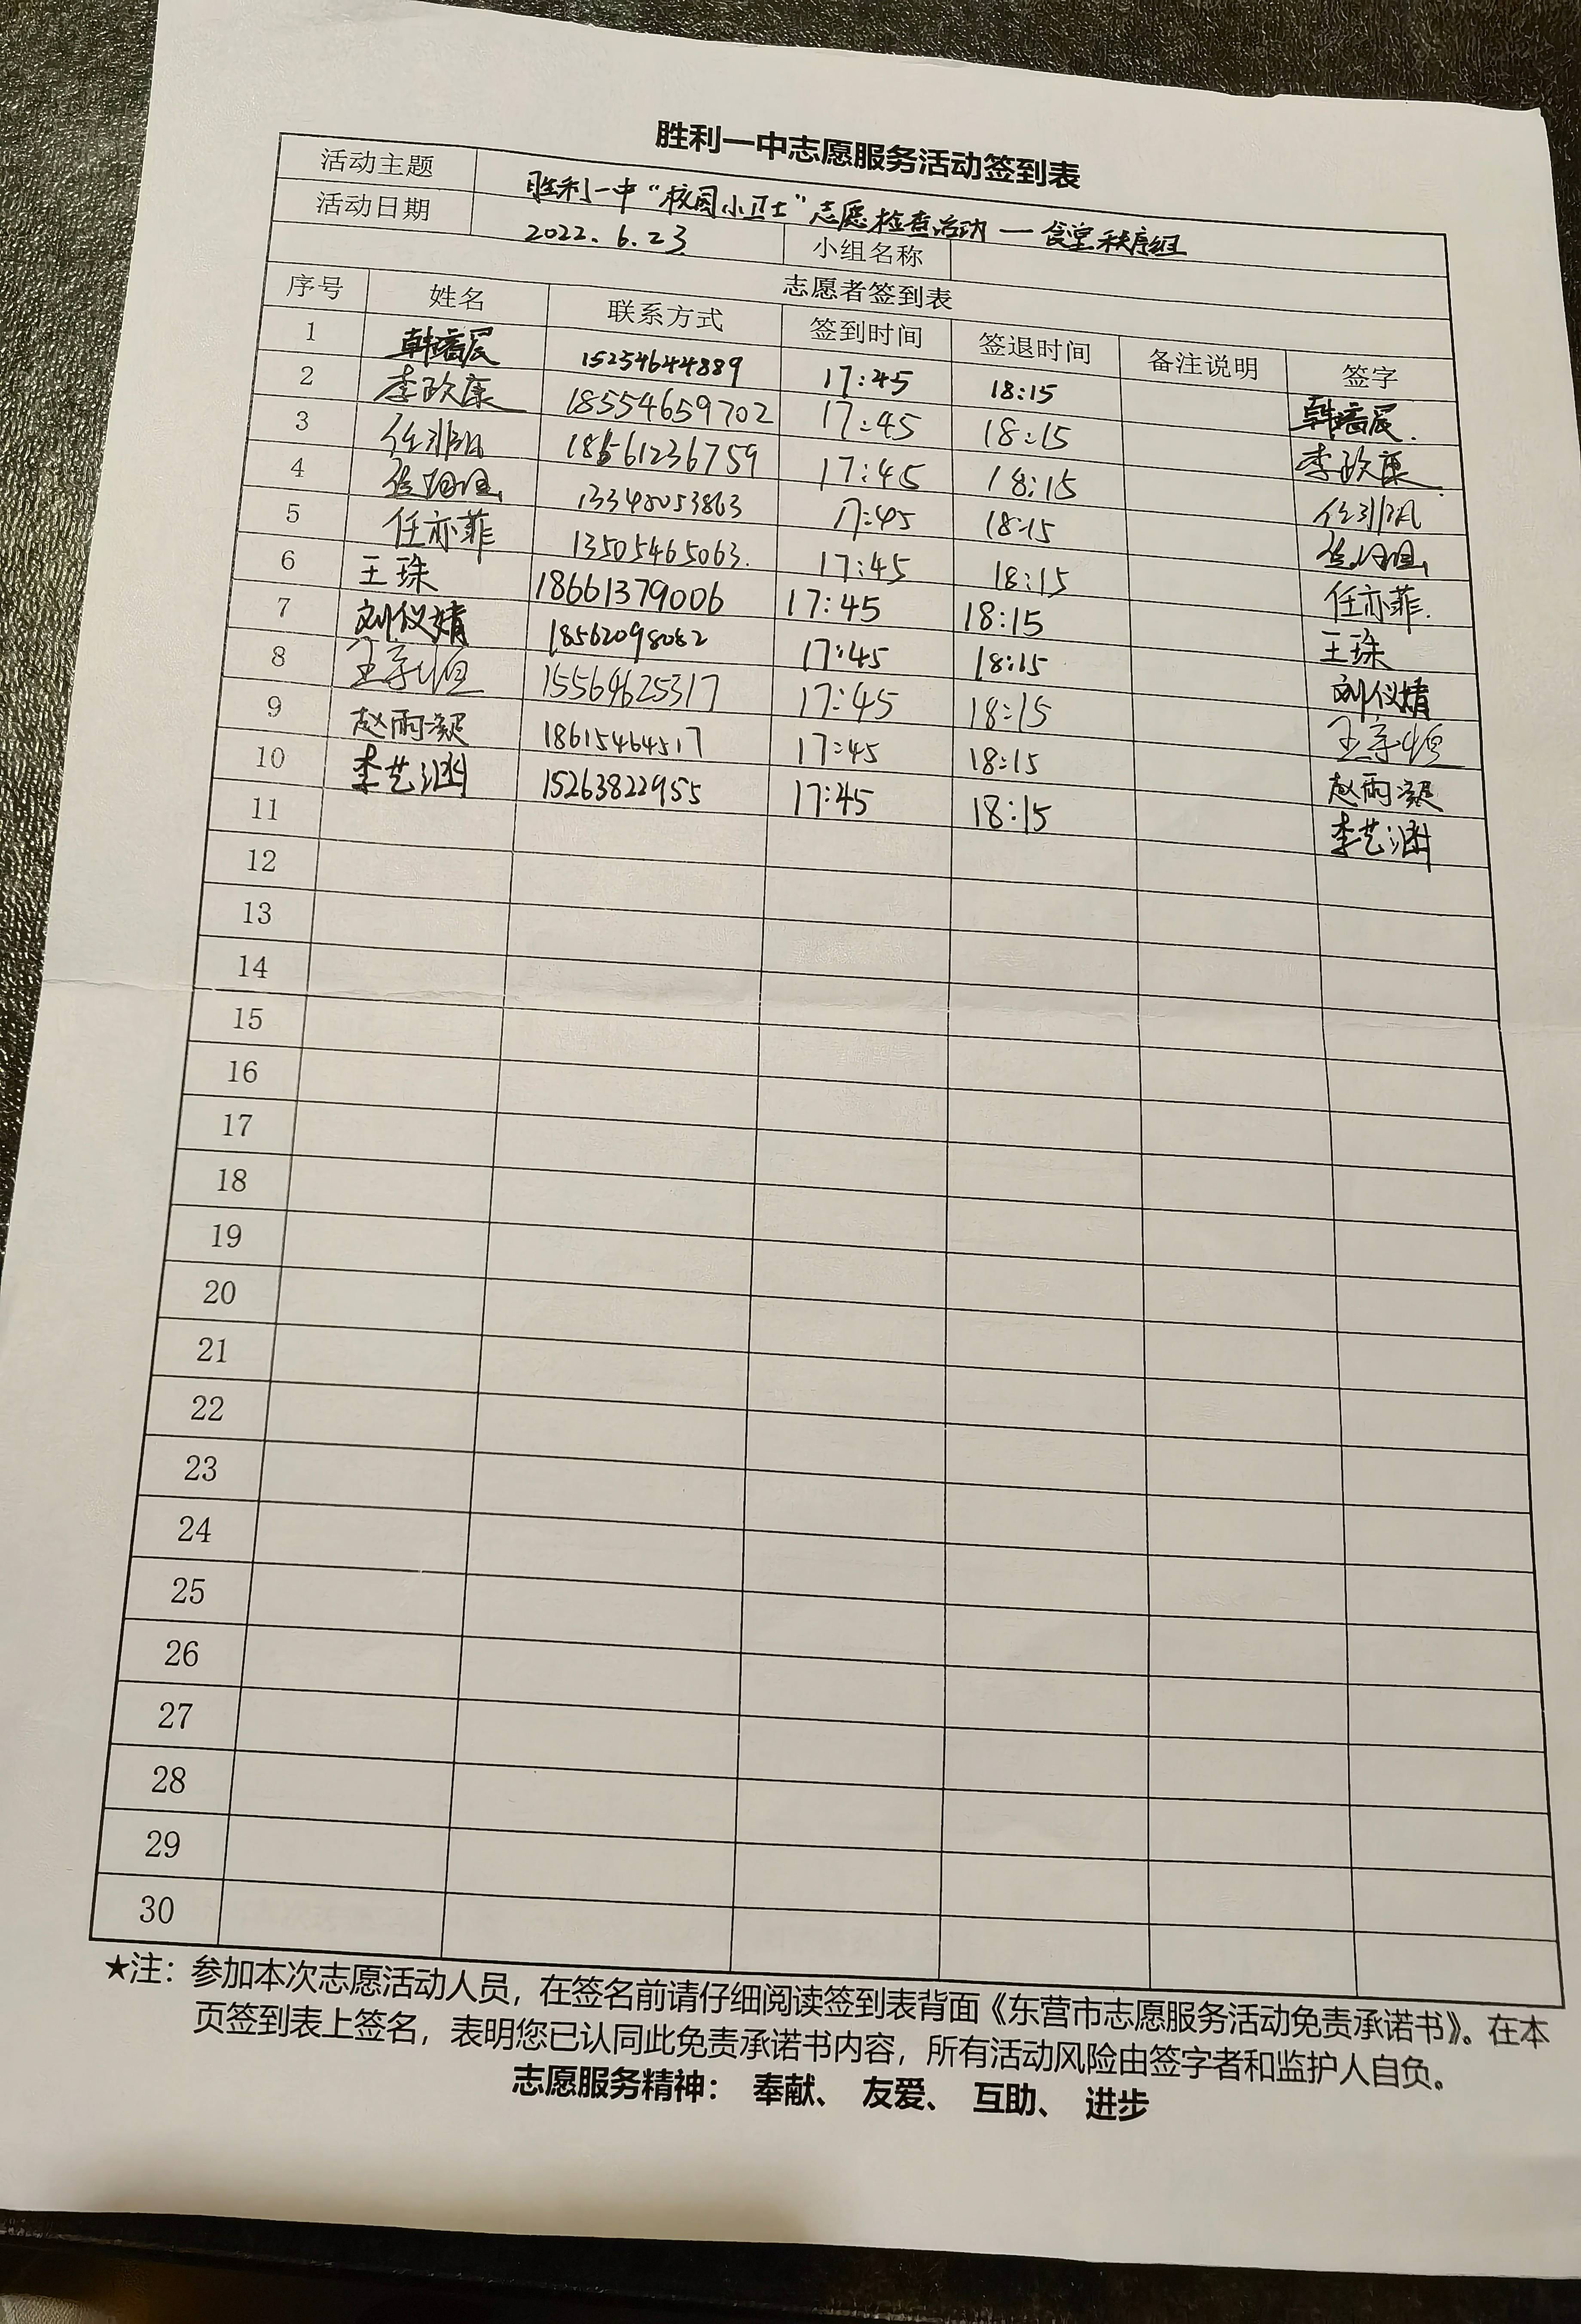 胜利一中志愿服务活动签到表
活动主题 胜利一中“校园小卫士”志愿检查活动—食堂秩序组
活动日期 2022.6.23 小组名称
志愿者签到表
序号 姓名 联系方式 签到时间 签退时间 备注说明 签字
1 15254644889 17:45 18:15
2 李政康 18554659702 17:45 18:15 李政康
3 18661236759 17:45 18:15
4 13348053863 17:45 18:15
5 任亦菲 13505465063 17:45 18:15 任亦菲
6 王珠 18661379006 17:45 18:15 王珠
7 刘仪婧 18562098082 17:45 18:15 刘仪婧
8 15564625317 17:45 18:15
9 赵雨凝 18615464517 17:45 18:15 赵雨凝
10 李艺涵 15263822955 17:45 18:15 李艺涵
11
12
13
14
15
16
17
18
19
20
21
22
23
24
25
26
27
28
29
30
★注：参加本次志愿活动人员，在签名前请仔细阅读签到表背面《东营市志愿服务活动免责承诺书》。在本
页签到表上签名，表明您已认同此免责承诺书内容，所有活动风险由签字者和监护人自负。
志愿服务精神： 奉献、 友爱、 互助、 进步